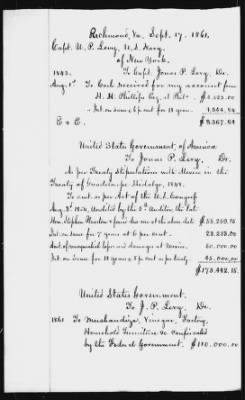 Richmond, Va. Sept. 17. 1861.
Capt. U. P. Levy, U. S. Navy.
of New York.
To Capt. Jonas P. Levy, Dr.
1843.
Aug. 1st To Cash received for my account from
H. M. Phillips Esq. at Phil.
Int. on same, 6 p. cent for 18 years
E & E.
United States Government, of America
To Jonas P. Levy. Dr.
As per Treaty stipulations with Mexico in the
Treaty of Guadeloupe Hidalgo, 1848.
To amt. as per Act of the U. S. Congress
Aug. 3d 1854, Audited by the 5th Auditor, the late
Hon. Stephen Pleaston & found due me at the above date $55.259.
Int. on same for 7 years at 6 per cent.
Amt. of unrequited losses and damages at Mexico. 50.000.00
Int. on same for 15 years & 6 per cent as per treaty 45.000.00
United States Government.
To J. P. Levy. Dr.
1861 To Merchandize, Vinegar, Factory,
Household Furniture &c confiscated
by the Federal Government. $110.000.00